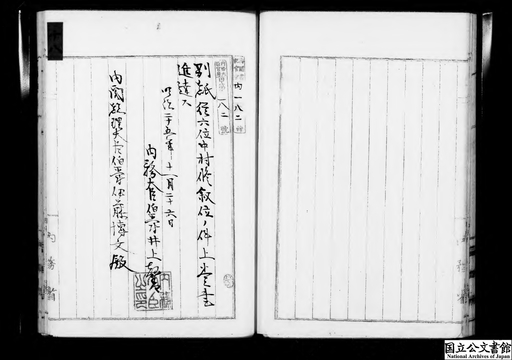 内一八二
一八二
別紙従六位中村修叙位ノ件上奏書
進達ス
明治二十五年十一月二十六日
内務大臣伯爵井上馨
内務大臣之印
内閣総理大臣伯爵伊藤博文殿
内務省
国立公文書館
National Archives of Japan